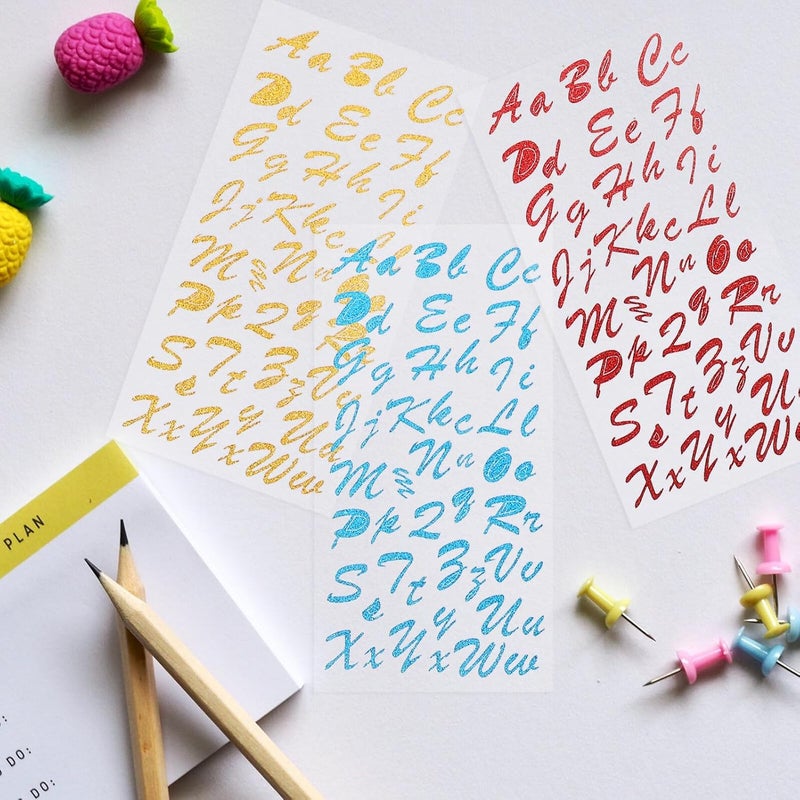 Aa Bb Cc
Dd Ee Ff
Gg Hh Ii
Jj Kk c
Mm Nn
Pp Qq
Ss Tt Zz Vv
Xx Yy x Uu Ww
Aa Bb Cc
Dd Ee Ff
Gg Hh Ii
Jj Kk c Ll
Mm Nn Oo
Pp Qq Rr
Ss Tt Zz Vv
Xx Yy x U W
Aa Bb Cc
Dd Ee Ff
Gg Hh Ii
Jj Kk c Ll
Mm Nn Oo
Pp Qq Rr
Ss Tt Zz Vv
Xx Yy x Uu Ww
PLAN
DO:
DO: